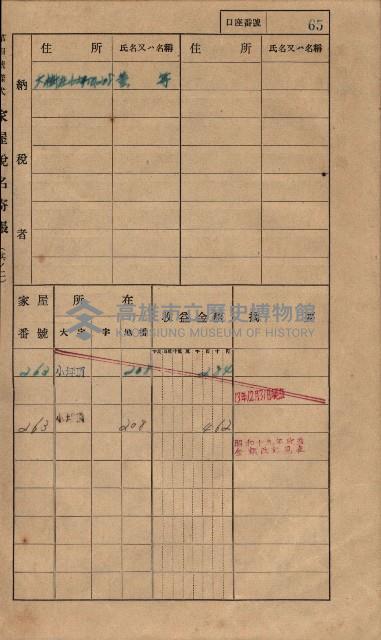 口座番號 65
第四號樣式 家屋稅名寄帳(其ノ二)
納稅者
住所 氏名又ハ名稱 住所 氏名又ハ名稱
大樹庄小坪頂
家屋番號 所在 收益金額 摘要
大字 字 地番
高雄市立歷史博物館
KAOHSIUNG MUSEUM OF HISTORY
263 小坪頂 208 284
13年12月31日
263 小坪頂 208 462
昭和十九年